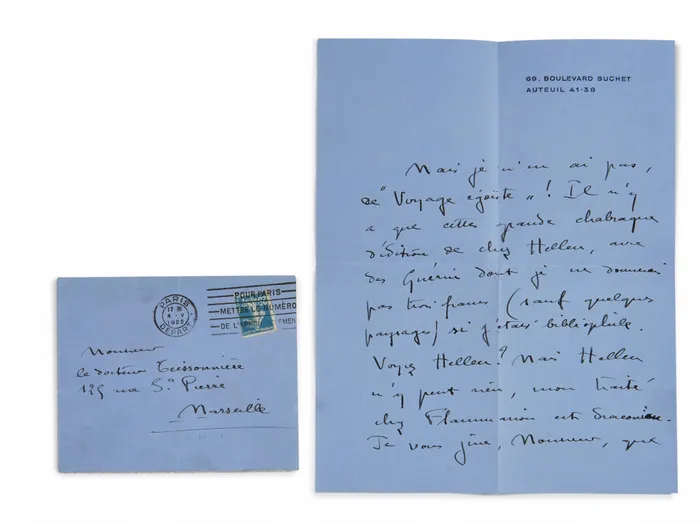 69, BOULEVARD SUCHET
AUTEUIL 41-38
Mais je n'en ai pas,
de "Voyage égoïste" ! Il n'y
a que cette grande chabraque
d'édition de chez Helleu, avec
des Guérin dont je ne donnerais
pas trois francs (sauf quelques
paysages) si j'étais bibliophile.
Voyez Helleu ? Mais Helleu
n'y peut rien, mon traité
chez Flammarion est draconien.
Je vous jure, Monsieur, que
PARIS
4 - V
DEPART
POUR PARIS
METTRE LE NUMÉRO
DE L'
Monsieur
le docteur Teissonnière
rue St Pierre
Marseille